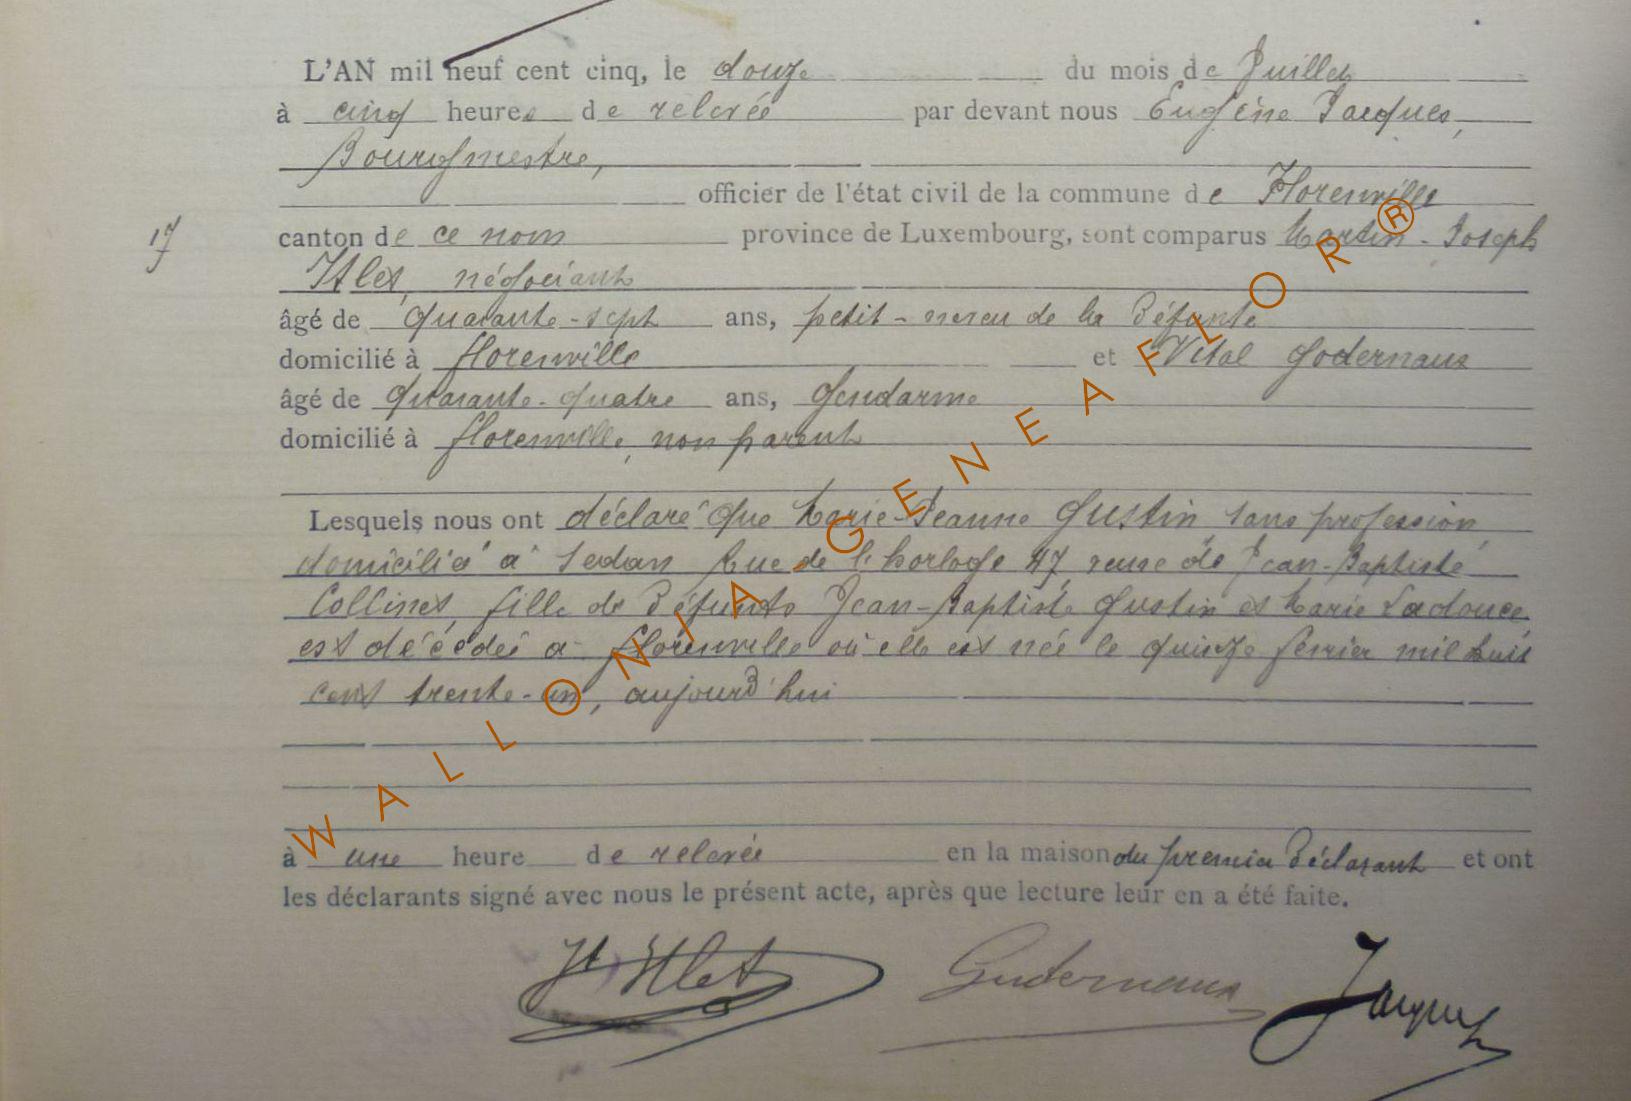 L'AN mil neuf cent cinq, le douze du mois de Juillet
à cinq heures de relevée par devant nous Eugène Jacques,
Bourgmestre,
officier de l'état civil de la commune de Florenville
17
canton de ce nom province de Luxembourg, sont comparus Martin-Joseph
négociant
âgé de quarante-sept ans, petit-neveu de la défunte
domicilié à florenville et Vital Godernaux
âgé de quarante-quatre ans, Gendarme
domicilié à florenville, non parent
Lesquels nous ont déclaré que Marie-Jeanne Gustin sans profession,
domiciliée à Sedan Rue de l'horloge 47 veuve de Jean-Baptiste
Collinet, fille de défunts Jean-Baptiste Gustin et Marie Ladouce
est décédée à florenville où elle est née le quinze février mil huit
cent trente-un, aujourd'hui
à une heure de relevée en la maison du premier déclarant et ont
les déclarants signé avec nous le présent acte, après que lecture leur en a été faite.
Godernaux Jacques
WALLONIA-GENEAFLOR®